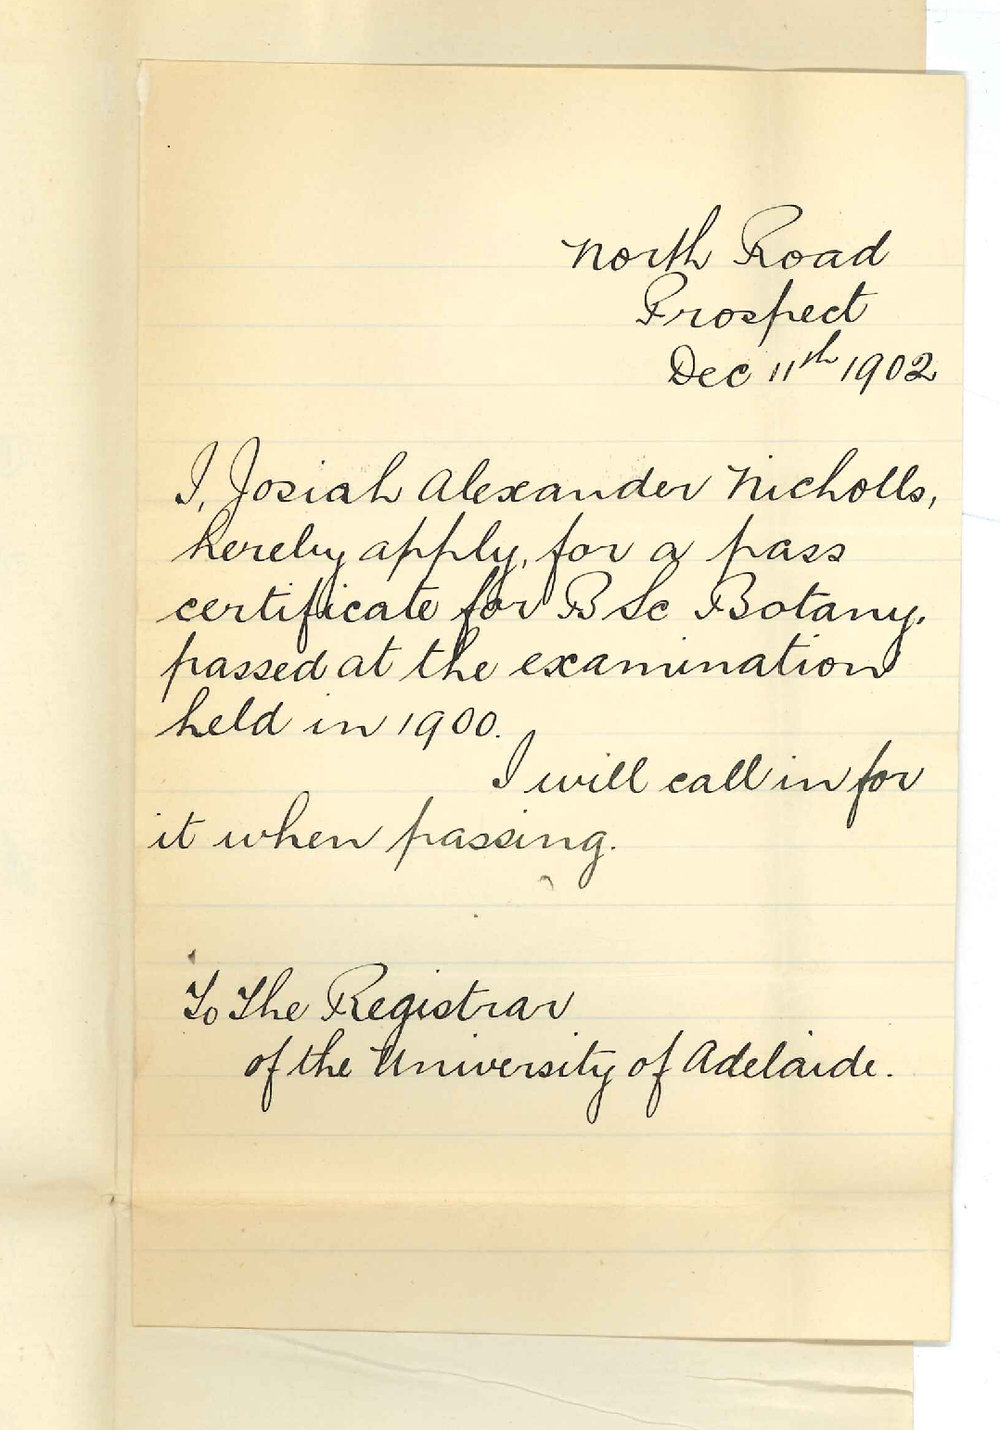 North Road
Prospect
Dec 11th 1902
I, Josiah Alexander Nicholls,
hereby apply, for a pass
certificate for B Sc Botany,
passed at the examination
held in 1900.
I will call in for
it when passing.
To The Registrar
of the University of Adelaide.